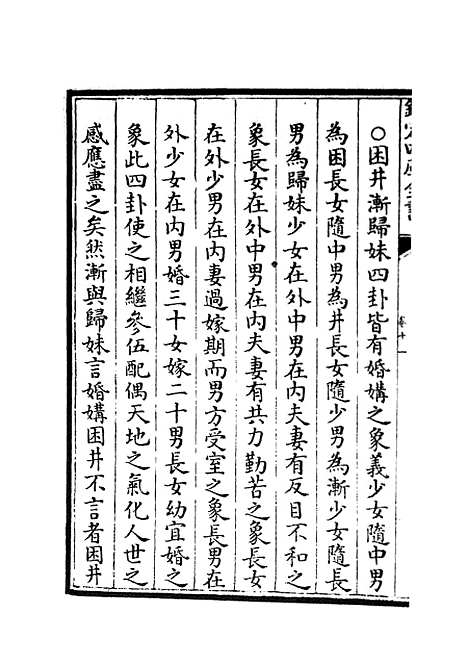 欽定四庫全書
○困井漸歸妹四卦皆有婚媾之象義少女隨中男
為困長女隨中男為井長女隨少男為漸少女隨長
男為歸妹少女在外中男在内夫妻有反目不和之
象長女在外中男在内夫妻有共力勤苦之象長女
在外少男在内妻過嫁期而男方受室之象長男在
外少女在内男婚三十女嫁二十男長女幼宜婚之
象此四卦使之相繼參伍配偶天地之氣化人世之
感應盡之矣然漸與歸妹言婚媾困井不言者困井